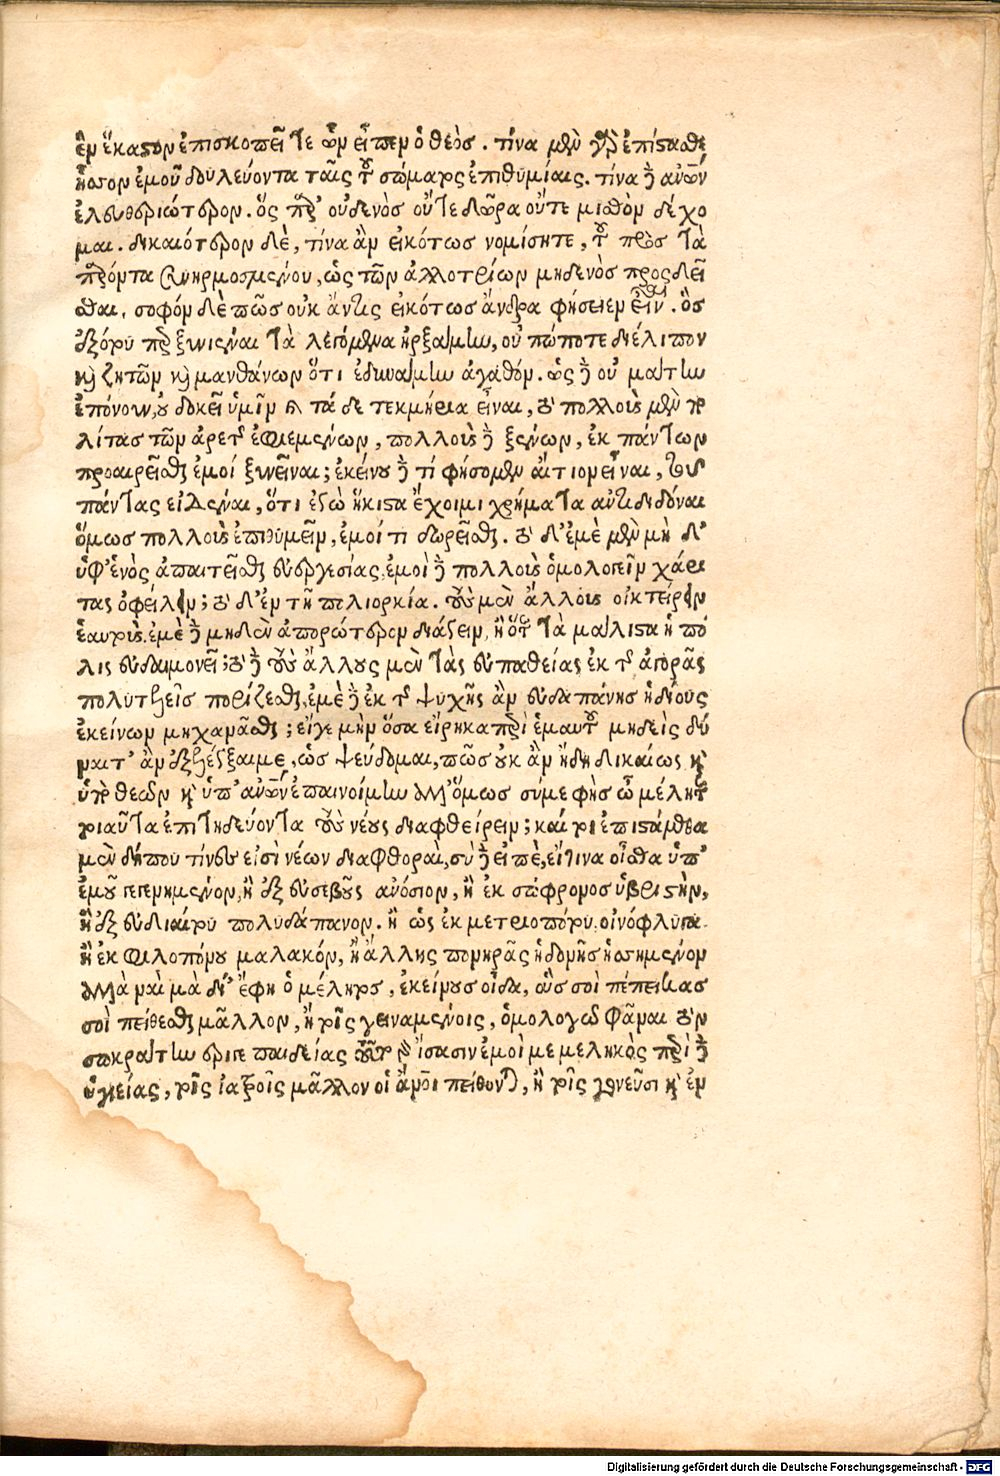 ἓν ἕκαστον ἐπισκοπεῖτε ὧν εἶπεν ὁ θεὸς. τίνα μὲν γὰρ ἐπίστασθε
ἧττον ἐμοῦ δουλεύοντα ταῖς τοῦ σώματος ἐπιθυμίαις. τίνα δὲ ἀνθρώπων
ἐλευθεριώτερον. ὃς παρ' οὐδενὸς οὔτε δῶρα οὔτε μισθὸν δέχο
μαι. δικαιότερον δὲ, τίνα ἂν εἰκότως νομίσητε, τοῦ πρὸς τὰ
παρόντα συνηρμοσμένου, ὡς τῶν ἀλλοτρίων μηδενὸς προσδεῖ
σθαι. σοφὸν δὲ πῶς οὐκ ἄν τις εἰκότως ἄνδρα φήσειεν εἶναι. ὃς
ἐξότου περ ξυνιέναι τὰ λεγόμενα ἠρξάμην, οὐ πώποτε διέλιπον
καὶ ζητῶν καὶ μανθάνων ὅτι ἐδυνάμην ἀγαθόν. ὡς δὲ οὐ μάτην
ἐπόνουν, οὐ δοκεῖ ὑμῖν καὶ τάδε τεκμήρια εἶναι, τὸ πολλοὺς μὲν πο
λίτας τῶν ἀρετῆς ἐφιεμένων, πολλοὺς δὲ ξένων, ἐκ πάντων
προαιρεῖσθαι ἐμοί ξυνεῖναι; ἐκείνου δὲ τί φήσομεν αἴτιον εἶναι, τοῦ
πάντας εἰδέναι, ὅτι ἐγὼ ἥκιστα ἔχοιμι χρήματα ἀντιδιδόναι
ὅμως πολλοὺς ἐπιθυμεῖν, ἐμοί τι δωρεῖσθαι. τὸ δ' ἐμὲ μὲν μὴ δ'
ὑφ' ἑνὸς ἀπαιτεῖσθαι εὐεργεσίας, ἐμοὶ δὲ πολλοὺς ὁμολογεῖν χάρι
τας ὀφείλειν; τὸ δ' ἐν τῇ πολιορκίᾳ. τοὺς μὲν ἄλλους οἰκτείρειν
ἑαυτοὺς. ἐμὲ δὲ μηδὲν ἀπορώτερον διάγειν, ἢ ὅτε τὰ μάλιστα ἡ πό
λις εὐδαιμονεῖ; τὸ δὲ τοὺς ἄλλους μὲν τὰς εὐπαθείας ἐκ τῆς ἀγορᾶς
πολυτελεῖς πορίζεσθαι, ἐμὲ δὲ ἐκ τῆς ψυχῆς ἂν εὐδαπάνης ἡδίους
ἐκείνων μηχανᾶσθαι; εἴγε μὴν ὅσα εἴρηκα περὶ ἐμαυτοῦ μηδεὶς δύ
ναιτ' ἂν ἐξελέγξαι με, ὡς ψεύδομαι, πῶς οὐκ ἂν ἤδη δικαίως καὶ
ὑπὸ θεῶν καὶ ὑπ' ἀνθρώπων ἐπαινοίμην ἀλλ' ὅμως σύ με φῂς ὦ μέλητε
τοιαῦτα ἐπιτηδεύοντα τοὺς νέους διαφθείρειν; καί τοι ἐπιστάμεθα
μὲν δήπου τίνες εἰσὶ νέων διαφθοραὶ, σὺ δὲ εἰπὲ, εἴ τινα οἶσθα ὑπ'
ἐμοῦ γεγενημένον, ἢ ἐξ εὐσεβοῦς ἀνόσιον, ἢ ἐκ σώφρονος ὑβριστὴν,
ἢ ἐξ εὐδιαίτου πολυδάπανον. ἢ ὡς ἐκ μετριοπότου. οἰνόφλυγα.
ἢ ἐκ φιλοπόνου μαλακόν, ἢ ἄλλης πονηρᾶς ἡδονῆς ἡσσημένον
ἀλλὰ ναὶ μὰ δί' ἔφη ὁ μέλητος, ἐκείνους οἶδα, οὓς σοὶ πέπεικας
σοὶ πείθεσθαι μᾶλλον, ἢ τοῖς γειναμένοις, ὁμολογῶ φᾶναι τὸν
σωκράτην περί γε παιδείας τοῦτο γὰρ ἴσασιν ἐμοὶ μεμεληκὸς περὶ δὲ
ὑγιείας, τοῖς ἰατροῖς μᾶλλον οἱ ἄνθρωποι πείθονται, ἢ τοῖς γονεῦσι καὶ ἐν
Digitalisierung gefördert durch die Deutsche Forschungsgemeinschaft - DFG